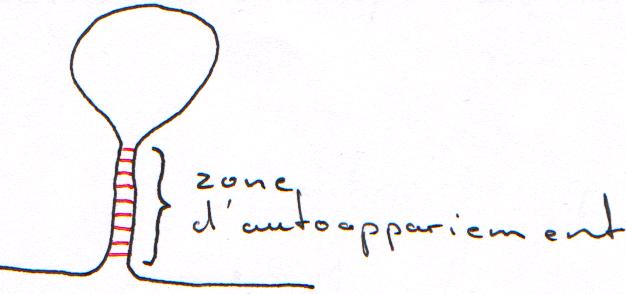 zone
d'autoappariement